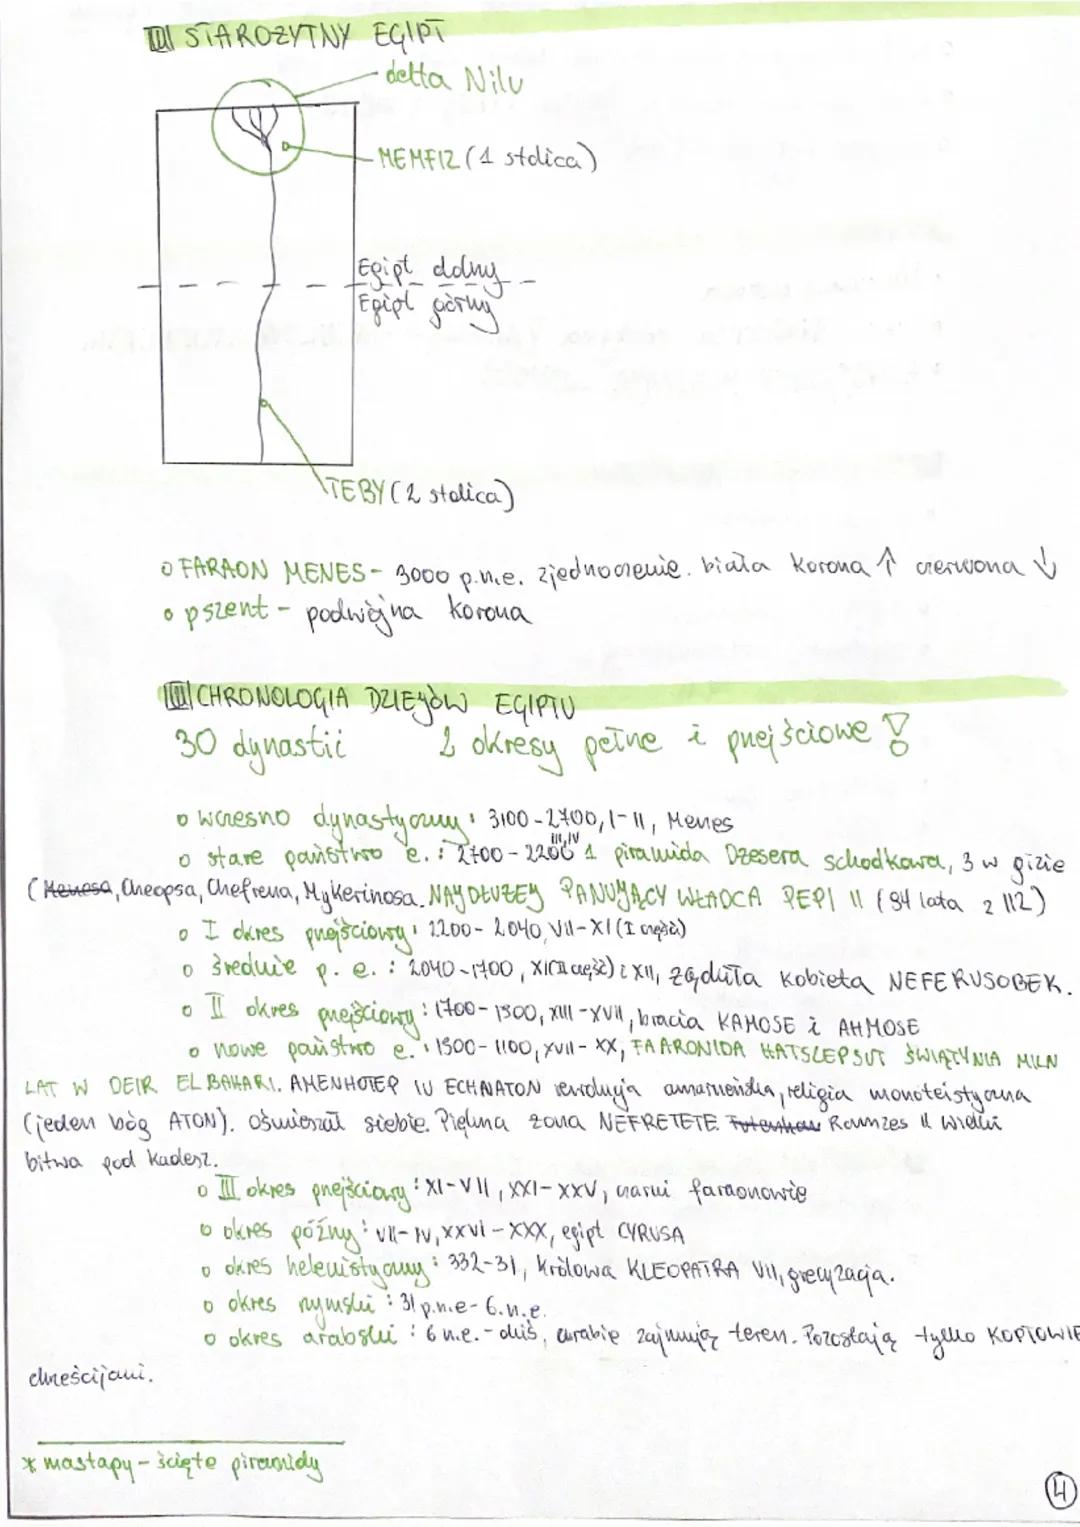 STAROŻYTNY EGIPT
delta Nilu
MEMFIZ (1 stolica)
Egipt dolny
Egipt górny
TEBY (2 stolica)
FARAON MENES - 3000 p.n.e. zjednoczenie. biała korona ↑ czerwona ↓
pszent - podwójna korona
CHRONOLOGIA DZIEJÓW EGIPTU
30 dynastii 2 okresy pełne i przejściowe !
wczesno dynastyczny: 3100-2700, I-II, Menes
stare państwo e.: 2700-2200 III, IV 1 piramida Dżesera schodkowa, 3 w gizie
(Menesa, Cheopsa, Chefrena, Mykerinosa. NAJDŁUŻEJ PANUJĄCY WŁADCA PEPI II (94 lata z 112)
I okres przejściowy: 2200-2040, VII-XI (I część)
średnie p. e.: 2040-1700, XI (II część) i XII, żądziła kobieta NEFERUSOBEK.
II okres przejściowy: 1700-1500, XIII-XVII, bracia KAMOSE i AHMOSE
nowe państwo e.: 1500-1100, XVII-XX, FAARONIDA HATSZEPSUT ŚWIĄTYNIA MILN
LAT W DEIR EL BAHARI. AMENHOTEP IV ECHNATON rewolucja amarneńska, religia monoteistyczna
(jeden bóg ATON). Oświerzał siebie. Piękna żona NEFRETETE. Ramzes II Wielki
bitwa pod Kadesz.
III okres przejściowy: XI-VII, XXI-XXV, czarni faraonowie
okres późny: VII-IV, XXVI-XXX, egipt CYRUSA
okres helenistyczny: 332-31, królowa KLEOPATRA VII, grecyzacja.
okres rzymski: 31 p.n.e-6.n.e.
okres arabski: 6 n.e.-dziś, arabie zajmują teren. Pozostają tylko KOPTOWIE
chrześcijani.
* mastapy - ścięte piramidy
4